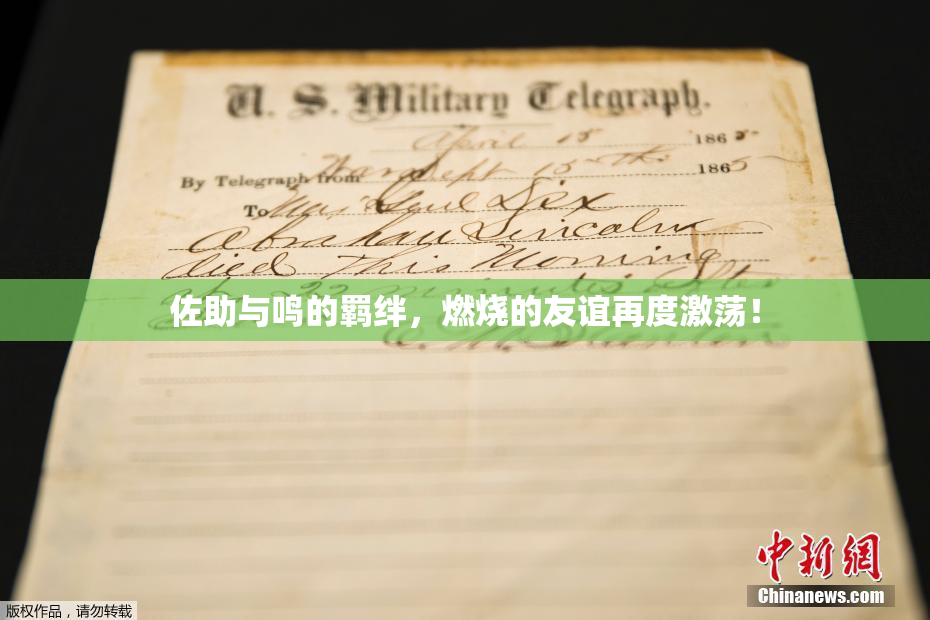 U. S. Military Telegraph.
April 15 1865
By Telegraph from War Dept 15th 1865
To Maj Genl Dix
Abraham Lincoln
died This Morning
at 22 minutes after
佐助与鸣的羁绊，燃烧的友谊再度激荡！
E. M. Stanton
中新网
Chinanews.com
版权作品，请勿转载